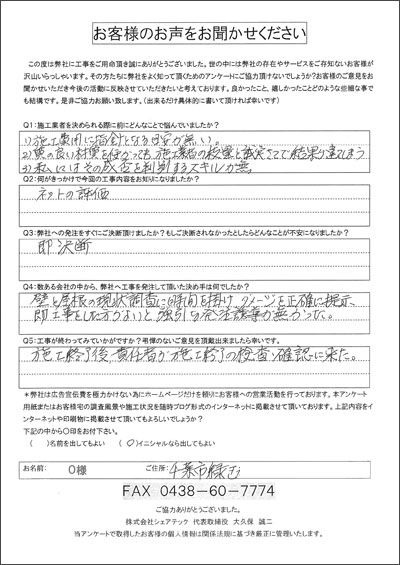 お客様のお声をお聞かせください
この度は弊社に工事をご用命頂き誠にありがとうございます。世の中には弊社の存在やサービスをご存知ないお客様が
沢山いらっしゃいます。その方たちに弊社をよく知って頂くためのアンケートにご協力頂けないでしょうか?お客様のご意見をお
聞かせいただき今後の活動に反映させていただきたいと考えております。良かったこと、嬉しかったことどのような些細な事で
も結構です。是非ご協力お願い致します。(出来るだけ具体的に書いて頂ければ幸いです)
Q1:施工業者を決められる際に前にどんなことで悩んでいましたか?
1)施工費用に指針となる目安が無い。
2)質の良い材質を使かっても、施工業者の技量と誠実さで結果が違ってしまう
3)私にはその成否を判別するスキルが無
Q2:何がきっかけで今回の工事内容をお知りになりましたか?
ネットの評価
Q3:弊社への発注をすぐにご決断頂けましたか?もしご決断されなかったとしたらどんなことが不安になりましたか?
即決断
Q4:数ある会社の中から、弊社へ工事を発注して頂いた決め手は何でしたか?
壁と屋根の現状調査に時間を掛け、ダメージを正確に提示、
即工事をした方がよいと強引な発注誘導が無かった。
Q5:工事が終わってみていかがですか?弔憚のないご意見を頂戴出来ましたら幸いです。
施工終了後、責任者が施工終了の検査・確認に来た。
*弊社は広告宣伝費を極力かけない為にホームページだけを頼りにお客様への営業活動を行っております。本アンケート
用紙またはお客様宅の調査風景や施工状況を随時ブログ形式のインターネットに掲載させて頂いております。上記内容をイ
ンターネットや印刷物に掲載させて頂いてもよろしいでしょうか?
下記の中から〇印をお付下さい。
( )名前を出してもよい (〇)イニシャルなら出してもよい
お名前: O様 ご住所: 千葉市緑区
FAX 0438-60-7774
ご協力ありがとうございました。
株式会社シェアテック 代表取締役 大久保 誠二
当アンケートで取得したお客様の個人情報は関係法規に基づき厳正に管理いたします。